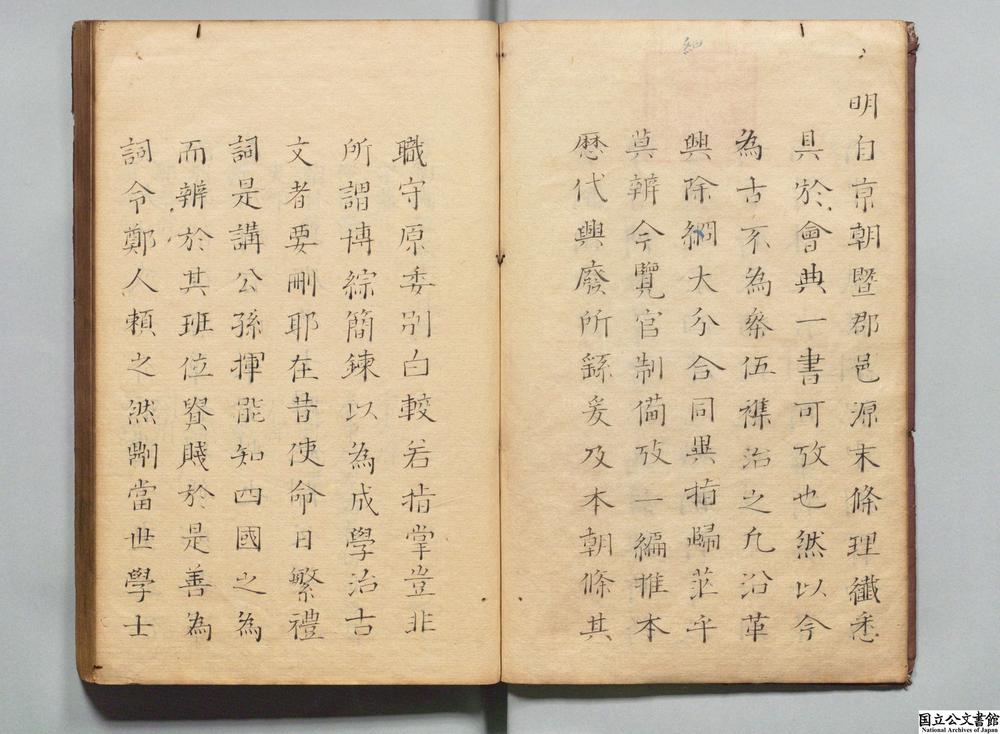 明自京朝暨郡邑源末條理纖悉
具於會典一書可攷也然以今
為古不為叅伍襍治之凢沿革
興除綱大分合同異指歸茫乎
莫辨今覽官制備攷一編推本
歷代興廢所繇爰及本朝條其
職守原委別白較若指掌豈非
所謂博綜簡鍊以為成學治古
文者要刪耶在昔使命日繁禮
詞是講公孫揮能知四國之為
而辨於其班位貴賤於是善為
詞令鄭人賴之然則當世學士
国立公文書館
National Archives of Japan